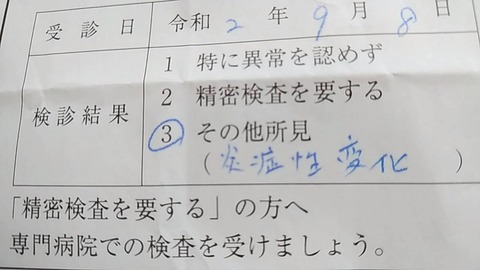 受診日 令和 2 年 9 月 8 日
検診結果
1 特に異常を認めず
2 精密検査を要する
3 その他所見
(炎症性変化)
「精密検査を要する」の方へ
専門病院での検査を受けましょう。